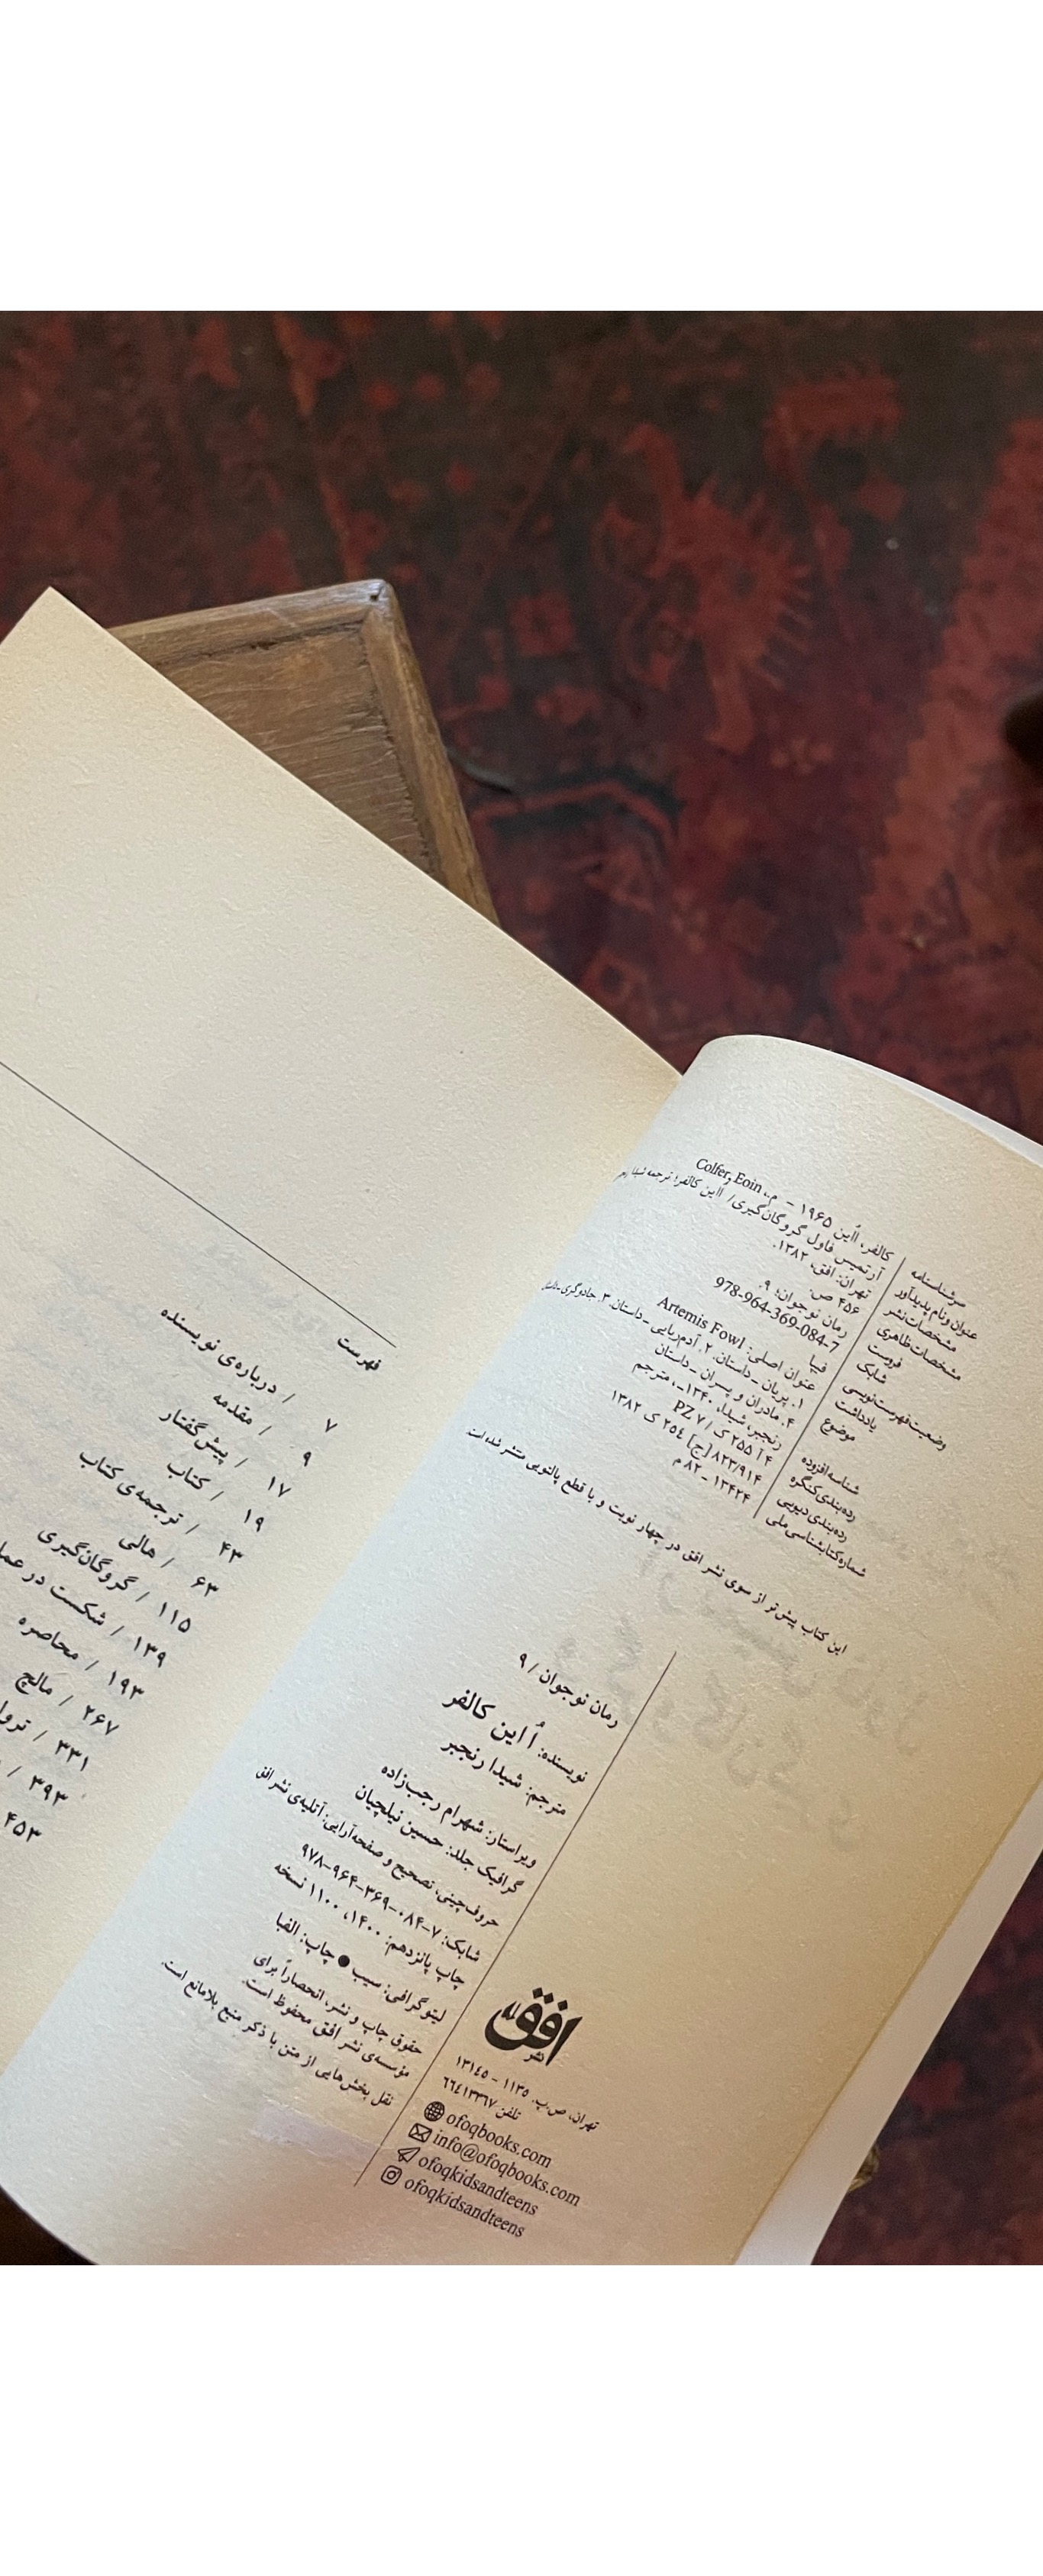 سرشناسنامه کالفر، اُاین ۱۹۶۵ - م.، Colfer, Eoin
عنوان و نام پدیدآور آرتمیس فاول گروگان‌گیری/ اُاین کالفر؛ ترجمه شیدا
مشخصات نشر تهران: افق، ۱۳۸۲.
مشخصات ظاهری ۴۵۶ ص.
فروست رمان نوجوان؛ ۹.
شابک 978-964-369-084-7
وضعیت فهرست‌نویسی فیپا
یادداشت عنوان اصلی: Artemis Fowl
موضوع ۱. پریان ـ داستان. ۲. آدم‌ربایی ـ داستان. ۳. جادوگری ـ
۴. مادران و پسران ـ داستان
شناسه افزوده رنجبر، شیدا، ۱۳۴۰ـ، مترجم
رده‌بندی کنگره ۴ آ ۲۵۵ ک / PZ ۷
رده‌بندی دیویی ۸۲۳/۹۱۴ [ج] ۲۵۴ ک ۱۳۸۲
شماره کتابشناسی ملی ۱۳۴۲۴ ـ ۸۲ م
این کتاب پیش‌تر از سوی نشر افق در چهار نوبت و با قطع پالتویی منتشر شده است.
رمان نوجوان / ۹
نویسنده: اُ این کالفر
مترجم: شیدا رنجبر
ویراستار: شهرام رجب‌زاده
گرافیک جلد: حسین نیلچیان
حروف‌چینی، تصحیح و صفحه‌آرایی: آتلیه‌ی نشر افق
شابک: ۷-۰۸۴-۳۶۹-۹۶۴-۹۷۸
چاپ پانزدهم: ۱۴۰۰، ۱۱۰۰ نسخه
لیتوگرافی: سیب ● چاپ: الفبا
حقوق چاپ و نشر، انحصاراً برای
مؤسسه‌ی نشر افق محفوظ است.
نقل بخش‌هایی از متن با ذکر منبع بلامانع است.
نشر افق
تهران، ص.پ. ۱۱۳۵ - ۱۳۱۴۵
تلفن ۶۶۴۱۳۳۶۷
ofoqbooks.com
info@ofoqbooks.com
ofoqkidsandteens
ofoqkidsandteens
فهرست
درباره‌ی نویسنده / ۷
مقدمه / ۹
پیش‌گفتار / ۱۷
کتاب / ۱۹
ترجمه‌ی کتاب / ۴۳
هالی / ۶۳
گروگان‌گیری / ۱۱۵
شکست در / ۱۳۹
محاصره / ۱۹۳
مالچ / ۲۶۷
/ ۳۳۱
/ ۳۹۳
۴۵۳